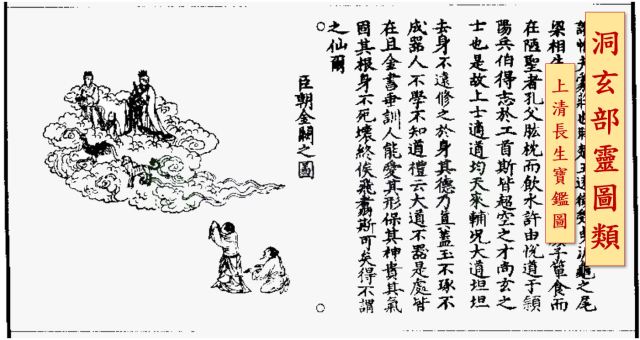 洞玄部靈圖類
上清長生寶鑑圖
之尾
梁相
簞食而
在陋聖者孔父肱枕而飲水許由悅道于潁
陽兵伯得志於工首斯皆超空之才尚玄之
士也是故上士適道均天來輔況大道坦坦
去身不遠修之於身其德乃真蓋玉不琢不
成器人不學不知道禮云大道不器是處皆
在且金書垂訓人能愛其形保其神貴其氣
固其根身不死壞終俟飛翥斯可矣得不謂
之仙爾
臣朝金闕之圖